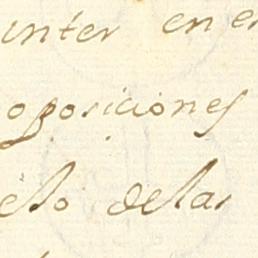 inter en en
oposiciones
elo delas